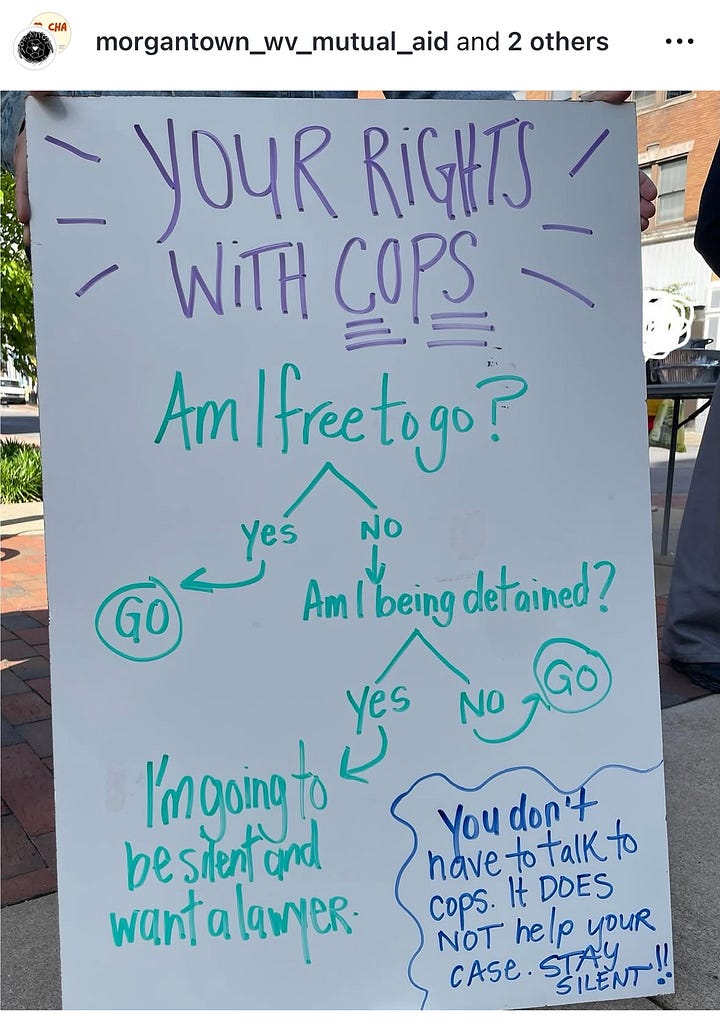 CHA
morgantown_wv_mutual_aid and 2 others
YOUR RiGHTS
WiTH COPS
Am I free to go?
Yes
NO
GO
Am I being detained?
Yes
NO
GO
I'm going to
be silent and
want a lawyer.
You don't
have to talk to
cops. It DOES
NOT help your
CASE. STAY
SILENT!!